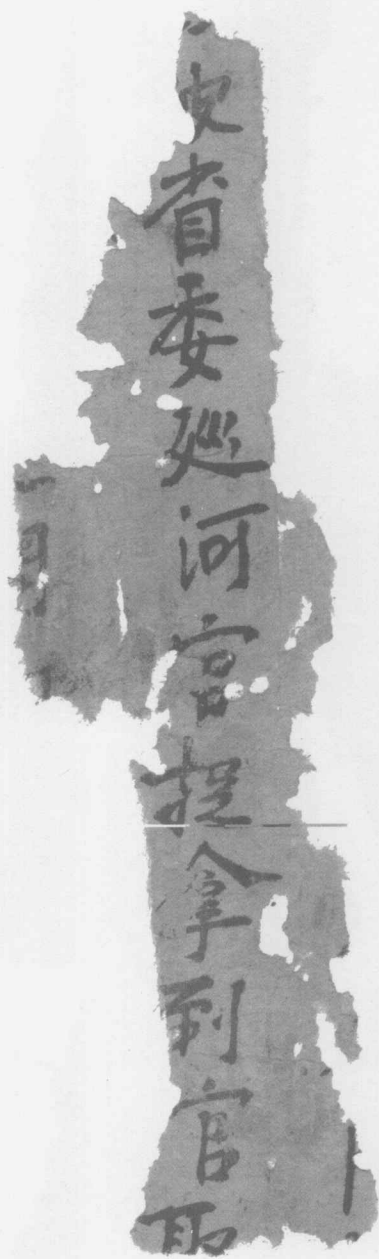 史省委廵河官捉拿到官取